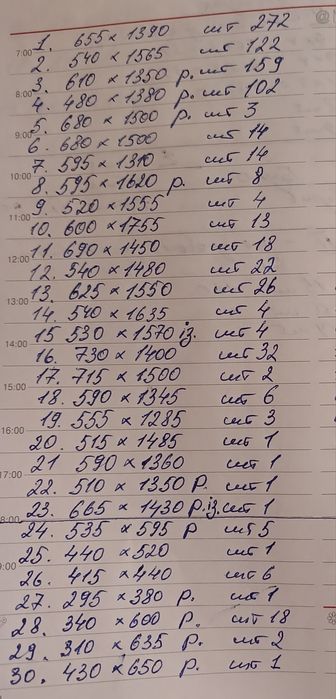 1. 655 × 1390 шт 272
7:00
2. 540 × 1565 шт 122
3. 610 × 1350 р. шт 159
8:00
4. 480 × 1380 р. шт 102
5. 680 × 1500 р. шт 3
9:00
6. 680 × 1500 шт 14
7. 595 × 1310 шт 14
10:00
8. 595 × 1620 р. шт 8
9. 520 × 1555 шт 4
11:00
10. 600 × 1755 шт 13
11. 690 × 1450 шт 18
12:00
12. 540 × 1480 шт 22
13. 625 × 1550 шт 26
13:00
14. 540 × 1635 шт 4
15 530 × 1570 із. шт 4
14:00
16. 730 × 1400 шт 32
17. 715 × 1500 шт 2
15:00
18. 590 × 1345 шт 6
19. 555 × 1285 шт 3
16:00
20. 515 × 1485 шт 1
21 590 × 1360 шт 1
17:00
22. 510 × 1350 р. шт 1
23. 665 × 1430 р.із. шт 1
8:00
24. 535 × 595 р шт 5
25. 440 × 520 шт 1
9:00
26. 415 × 440 шт 6
27. 295 × 380 р. шт 1
28. 340 × 600 р. шт 18
29. 310 × 635 р. шт 2
30. 430 × 650 р. шт 1